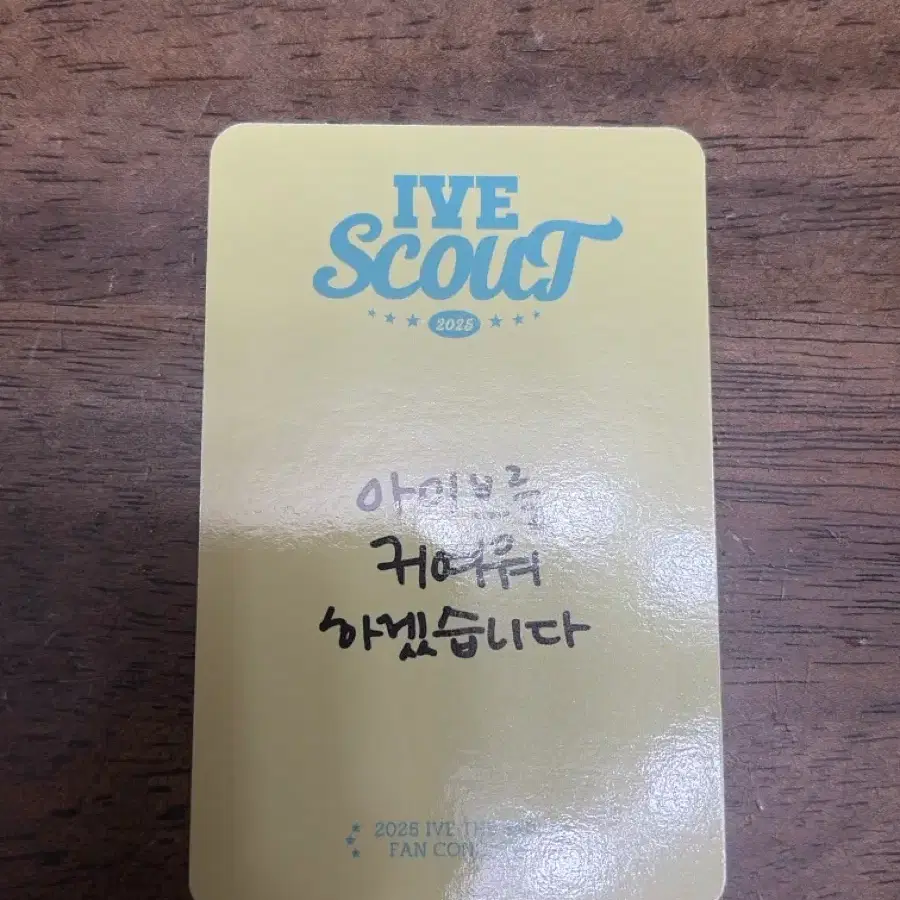 IVE
SCOUT
2025
아이브를
귀여워
하겠습니다
2025 IVE THE
FAN